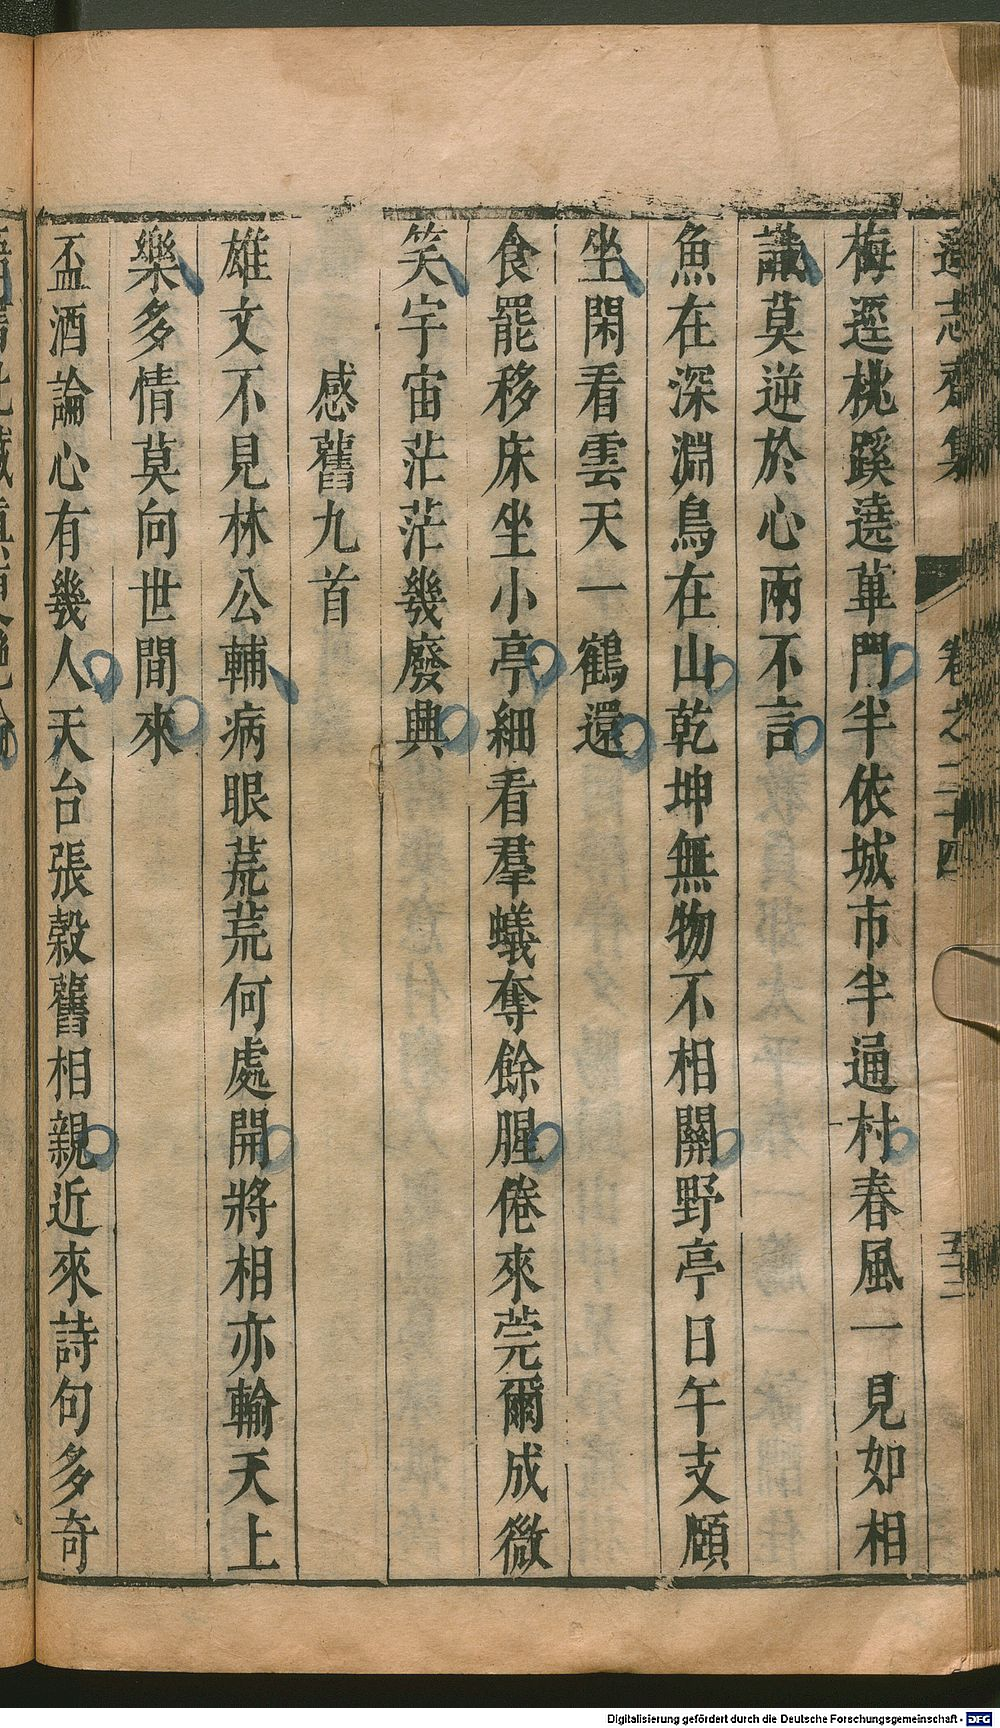 遜志齋集　卷之二十四　五十二
梅逕桃蹊遶蓽門半依城市半通村春風一見如相
識莫逆於心兩不言
魚在深淵鳥在山乾坤無物不相關野亭日午支頤
坐閑看雲天一鶴還
食罷移床坐小亭細看羣蟻奪餘腥倦來莞爾成微
笑宇宙茫茫幾廢興
感舊九首
雄文不見林公輔病眼荒荒何處開將相亦輸天上
樂多情莫向世間來
盃酒論心有幾人天台張縠舊相親近來詩句多奇
Digitalisierung gefördert durch die Deutsche Forschungsgemeinschaft - DFG